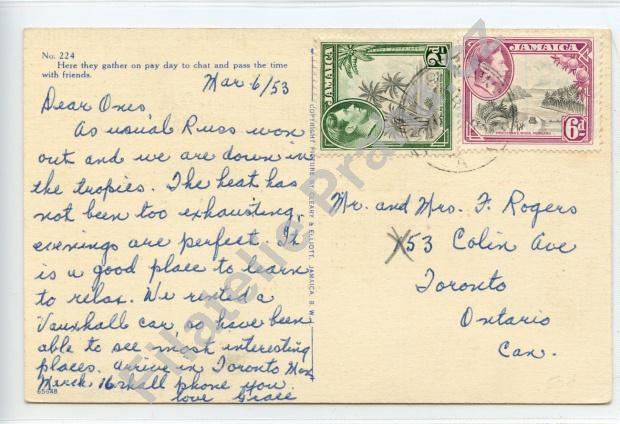 No. 224
Here they gather on pay day to chat and pass the time
with friends.
Mar 6/53
Dear Ones
As usual Russ won
out and we are down in
the tropics. The heat has
not been too exhausting,
evenings are perfect. It
is a good place to learn
to relax. We rented a
Vauxhall car, so have been
able to see most interesting
places. Arrive in Toronto Mon
March 16 shall phone you.
love Grace
65948
COPYRIGHT PICTURE BY CLEARY & ELLIOTT, JAMAICA, B. W. I.
JAMAICA
2d
JAMAICA
6d
Mr. and Mrs. F. Rogers
53 Colin Ave
Toronto
Ontario
Can.
Filatelie Praha